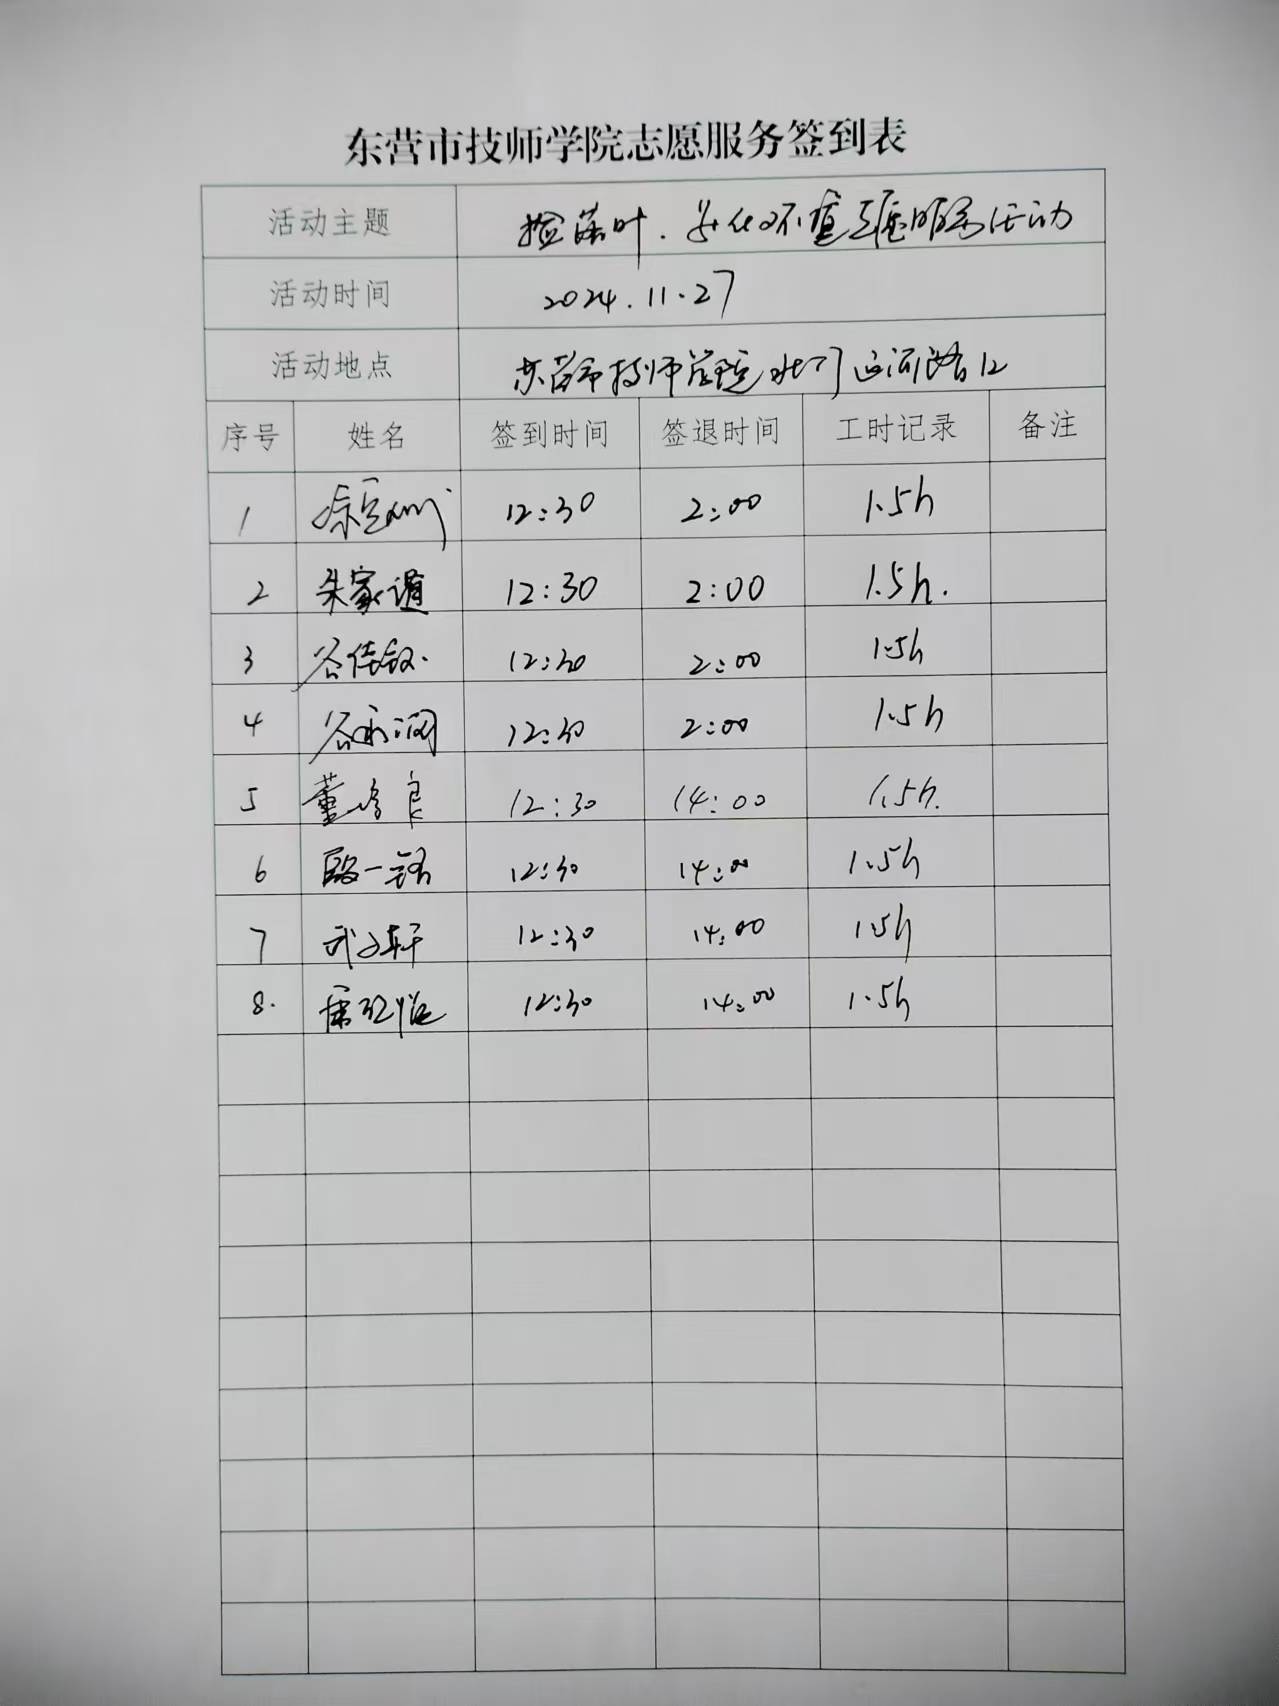 东营市技师学院志愿服务签到表
活动主题 捡落叶.美化环境志愿服务活动
活动时间 2024.11.27
活动地点 东营市技师学院北门运河路12
序号 姓名 签到时间 签退时间 工时记录 备注
1 12:30 2:00 1.5h
2 朱家谊 12:30 2:00 1.5h.
3 12:30 2:00 1.5h
4 谷雨润 12:30 2:00 1.5h
5 12:30 14:00 1.5h.
6 12:30 14:00 1.5h
7 武文轩 12:30 14:00 1.5h
8. 12:30 14:00 1.5h